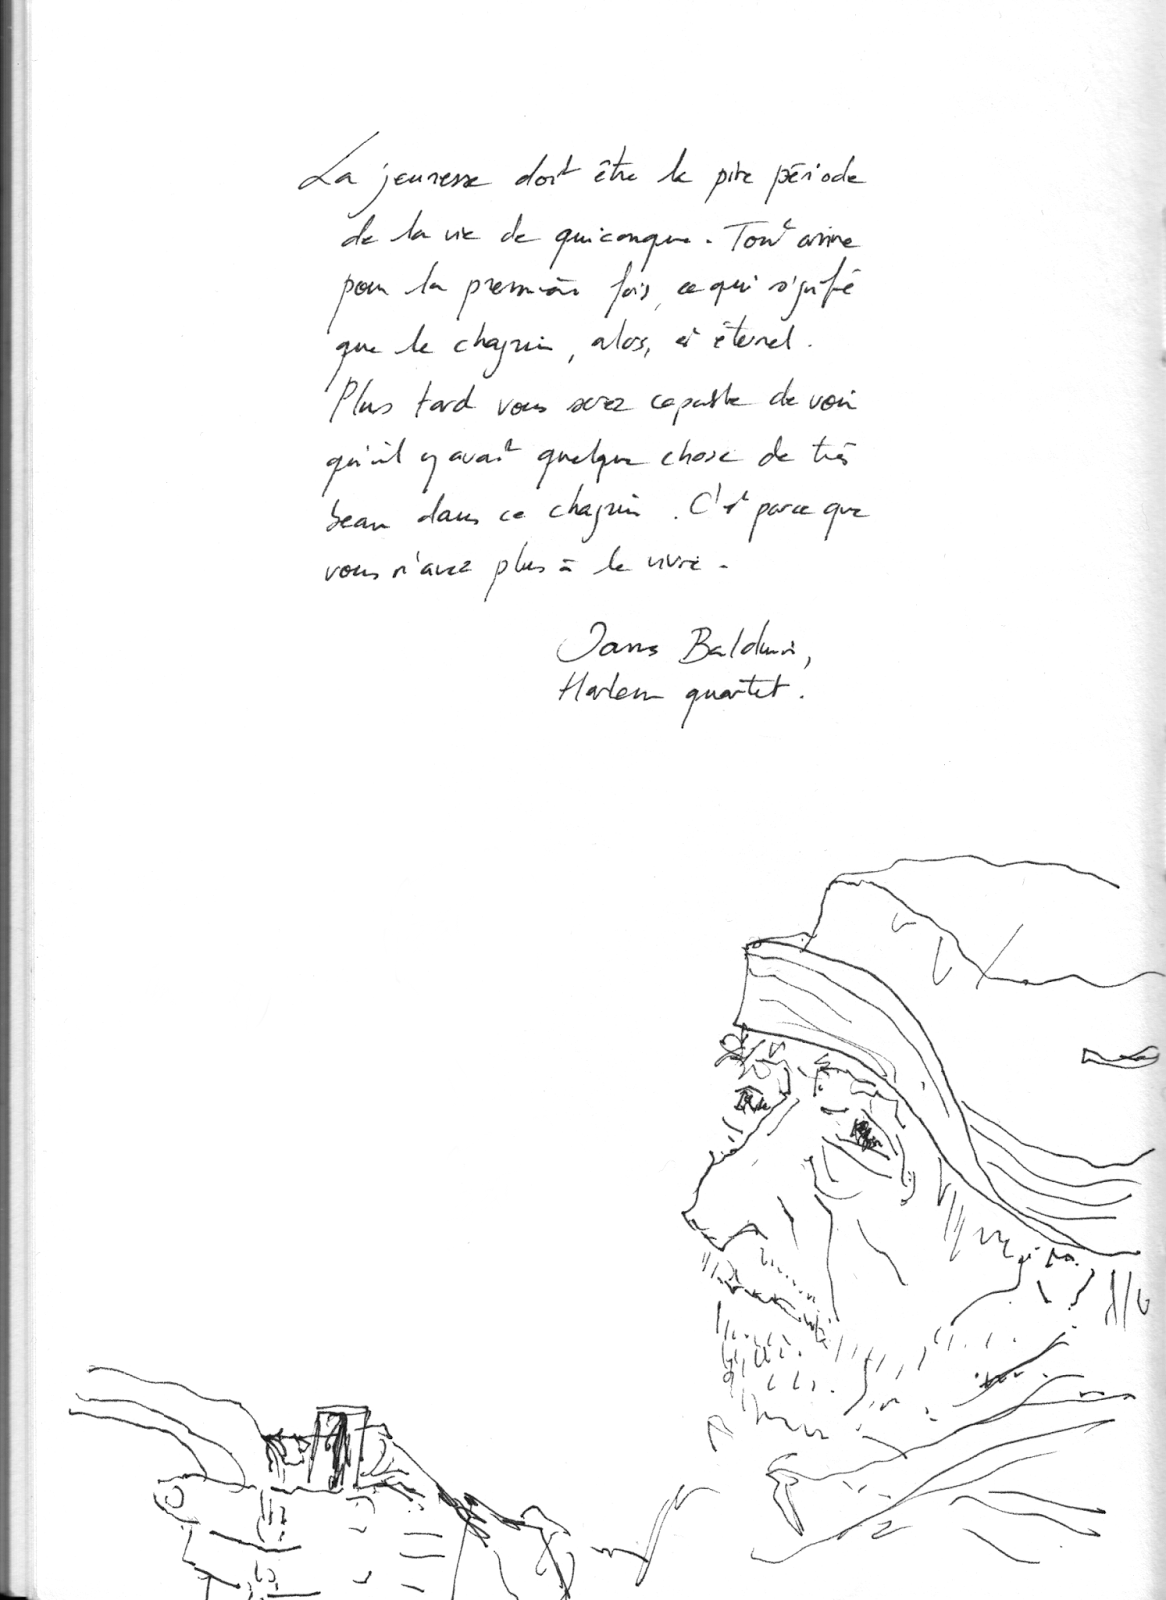 La jeunesse doit être la pire période
de la vie de quiconque. Tout arrive
pour la première fois, ce qui signifie
que le chagrin, alors, est éternel.
Plus tard vous serez capable de voir
qu'il y avait quelque chose de très
beau dans ce chagrin. C'est parce que
vous n'avez plus à le vivre.
James Baldwin,
Harlem quartet.